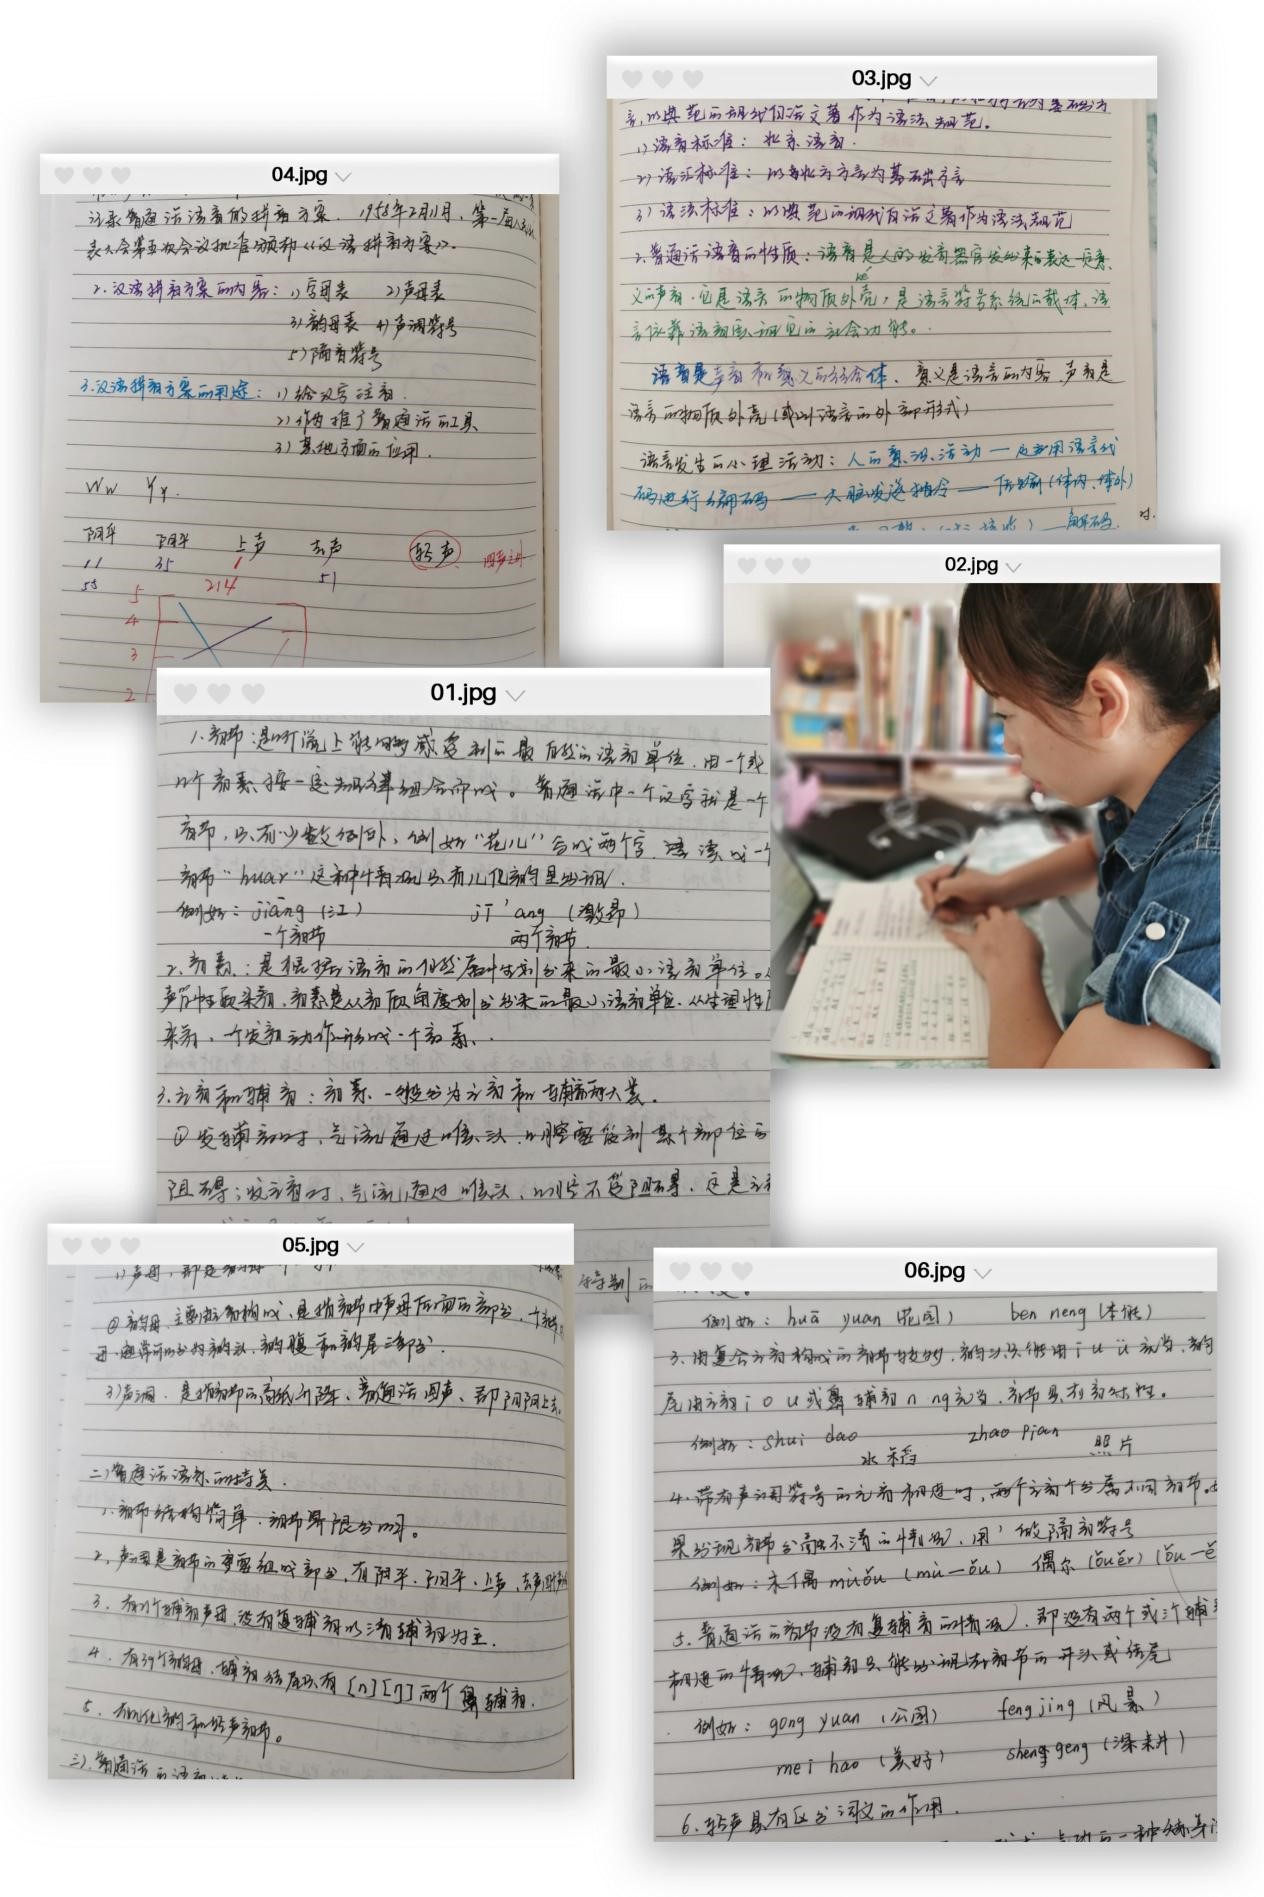 03.jpg
言,以典范的现代白话文著作为语法规范。
1)语音标准:北京语音.
2)语汇标准:以北方方言为基础方言
3)语法标准:以典范的现代白话文著作为语法规范
2.普通话语音的性质:语音是人的发音器官发出来的表达一定意
义的声音.它是语言的物质外壳,是语言符号系统的载体,语
言依靠语音实现它的社会功能。
语音是声音和意义的结合体、意义是语言的内容,声音是
语言的物质外壳(或叫语言的外部形式)
语言发生的心理活动:人的意识活动—应用语言代
码进行编码——大脑发送指令——传输(体内、体外)
解码.
04.jpg
记录普通话语音的拼音方案.1958年2月11日,第一届人
表大会第五次会议批准颁布《汉语拼音方案》.
2.汉语拼音方案的内容:1)字母表 2)声母表
3)韵母表 4)声调符号
5)隔音符号
3.汉语拼音方案的用途:1)给汉字注音.
2)作为推广普通话的工具
3)其他方面的应用.
Ww Yy.
阴平 阳平 上声 去声 轻声
55 35 214 51
5
4
3
2
02.jpg
01.jpg
1.音节:是听觉上能够感受到的最自然的语音单位,由一个或
几个音素按一定规律组合而成。普通话中一个汉字就是一个
音节,只有少数例外,例如"花儿"写成两个字,读成一个
音节"huar"这种情况只有儿化韵里出现.
例如:jiāng(江) jī'ang(激昂)
一个音节 两个音节.
2.音素:是根据语音的自然属性划分出来的最小语音单位。从
声学性质来看,音素是从音质角度划分出来的最小语音单位.从生理性
来看,一个发音动作形成一个音素.
3.元音和辅音:音素一般分为元音和辅音两大类。
①发辅音时,气流通过喉头,口腔要受到某个部位的
阻碍;发元音时,气流通过喉头,口腔不受阻碍,这是元
05.jpg
②韵母,主要由元音构成,是指音节中声母后面的部分,
母通常可以分为韵头、韵腹和韵尾三部分.
3)声调.是指音节的高低升降、普通话四声、即阴阳上去.
二)普通话语音的特点.
1.音节结构简单,音节界限分明。
2.声调是音节的重要组成部分,有阴平、阳平、上声、去声
3.有21个辅音声母,没有复辅音以清辅音为主.
4.有39个韵母,辅音结尾只有[n][ŋ]两个鼻辅音.
5.有儿化韵和轻声音节。
06.jpg
例如:huā yuan(花园) ben neng(本能)
3.由复合元音构成的音节较多,韵头只能由i u ü充当,韵
尾由元音i o u或鼻辅音n ng充当,音节具有音乐性。
例如:shui dao zhao pian
水稻 照片
4.带有声调符号的元音相连时,两个元音分属不同音节.如
果出现音节分割不清的情况,用'做隔音符号
例如:木偶 mùǒu(mù—ǒu) 偶尔(ǒuěr)(ǒu—ě
5.普通话的音节没有复辅音的情况,即没有两个或三个辅音
相连的情况,辅音只能出现在音节的开头或结尾
例如:gong yuan(公园) fengjing(风景)
mei hao(美好) sheng geng(深耕)
6.轻声具有区分词义的作用.